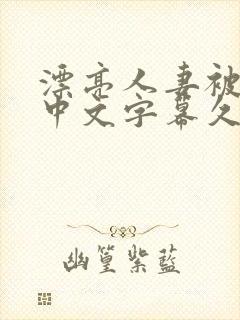 漂亮人妻被
中文字幕久
幽篁紫蓝